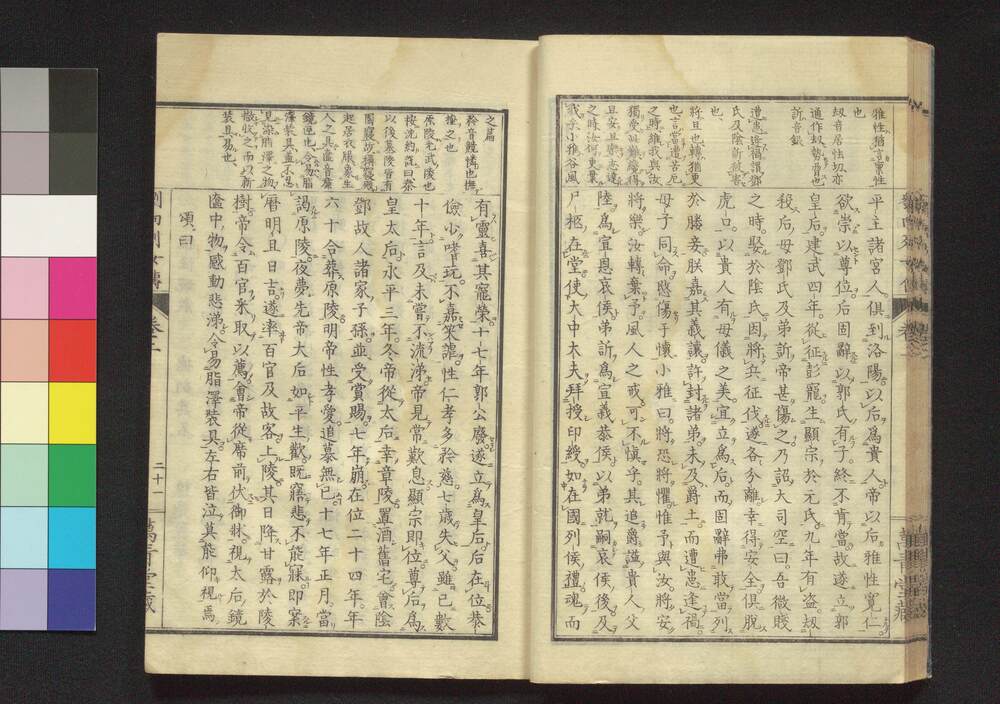 雅性猶言稟性
也
劫音居怯切亦
通作刼勢脅也
訢音銀
遭患逢禍謂鄧
氏及陰訢被害
也
將且也轉猶更
也言當遭苦厄
之時維我與汝
獨受此難纔得
且安且樂志達
之時汝何更棄
我乎小雅谷風
平主諸宮人俱到洛陽以后爲貴人帝以后雅性寛仁
欲崇以尊位后固辭以郭氏有子終不肯當故遂立郭
皇后建武四年從征彭寵生顯宗於元氏九年有盗刼
殺后母鄧氏及弟訢帝甚傷之乃詔大司空曰吾微賤
之時娶於陰氏因將兵征伐遂各分離幸得安全俱脱
虎口以貴人有母儀之美宜立爲后而固辭弗敢當列
於媵妾朕嘉其義讓許封諸弟未及爵土而遭患逢禍
母子同命愍傷于懐小雅曰將恐將懼惟予與汝將安
將樂汝轉棄予風人之戒可不慎乎其追爵謚貴人父
陸爲宣恩哀侯弟訢爲宣義恭侯以弟就嗣哀侯後及
尸柩在堂使大中大夫拜授印綬如在國列侯禮魂而
之篇
矜音兢憐也撫
掩之也
原陵光武陵也
按沈約䟽曰秦
以後墓陵皆有
園寢故稱寢殿
起居衣服象生
人之具匳音廉
鏡匣也令易脂
澤裝具蓋不忍
見舊脂澤之物
撤收之而以新
裝具易也
有靈喜其寵榮十七年郭公廢遂立爲皇后后在位恭
儉少嗜玩不嘉笑謔性仁孝多矜慈七歳失父雖已數
十年言及未嘗不流涕帝見常歎息顯宗即位尊后爲
皇太后永平三年冬帝從太后幸章陵置酒舊宅會陰
鄧故人諸家子孫並受賞賜七年崩在位二十四年年
六十合葬原陵明帝性孝愛追慕無已十七年正月當
謁原陵夜夢先帝大后如平生歡旣寤悲不能寐即案
暦明旦日吉遂率百官及故客上陵其日降甘露於陵
樹帝令百官采取以薦會帝從席前伏御牀視太后鏡
匳中物感動悲涕令易脂澤裝具左右皆泣莫能仰視焉
頌曰
劉向列女傳
卷三
二十一
萬青堂藏